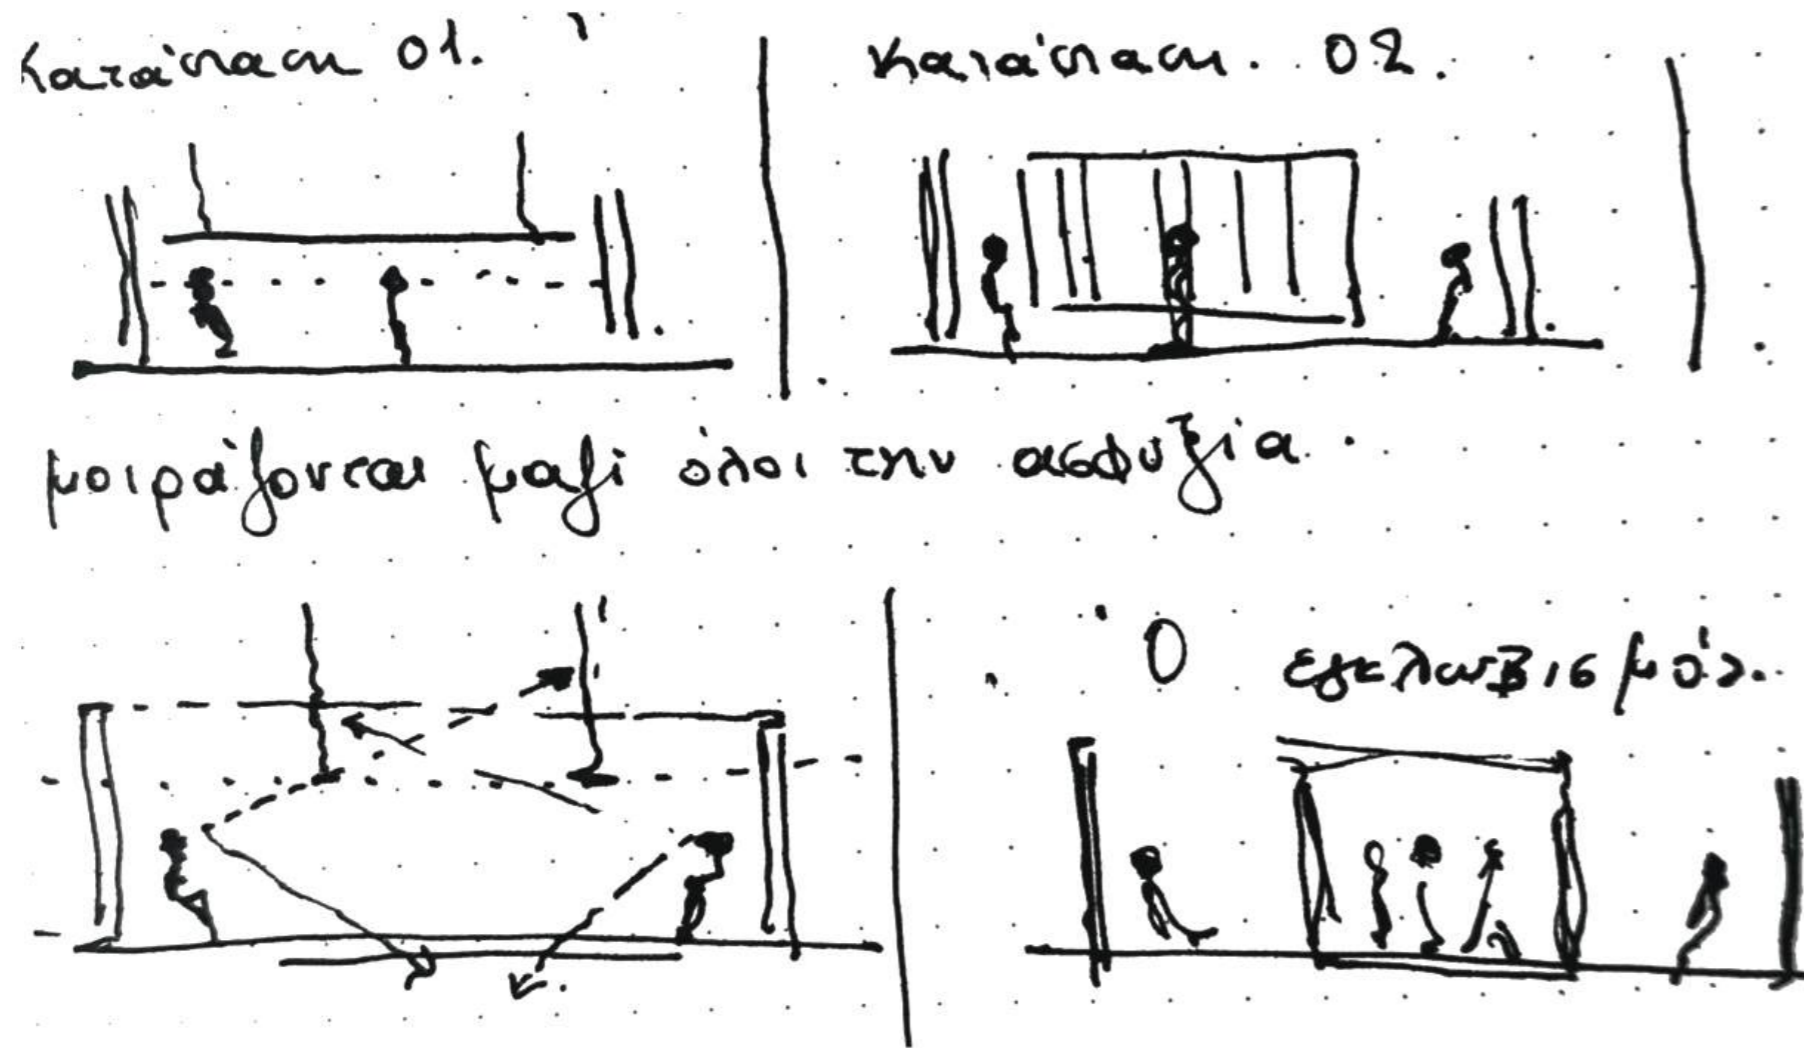 κατάσταση 01.
κατάσταση. 02.
μοιράζονται μαζί όλοι την ασφυξία.
Ο εγκλωβισμός.